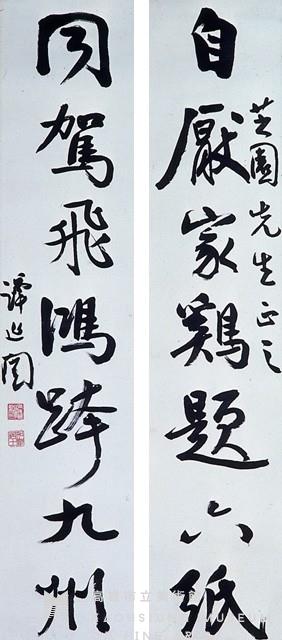 芝園先生正之
自厭家雞題六紙
同駕飛鴻跨九州
譚延闓
高雄市立美術館